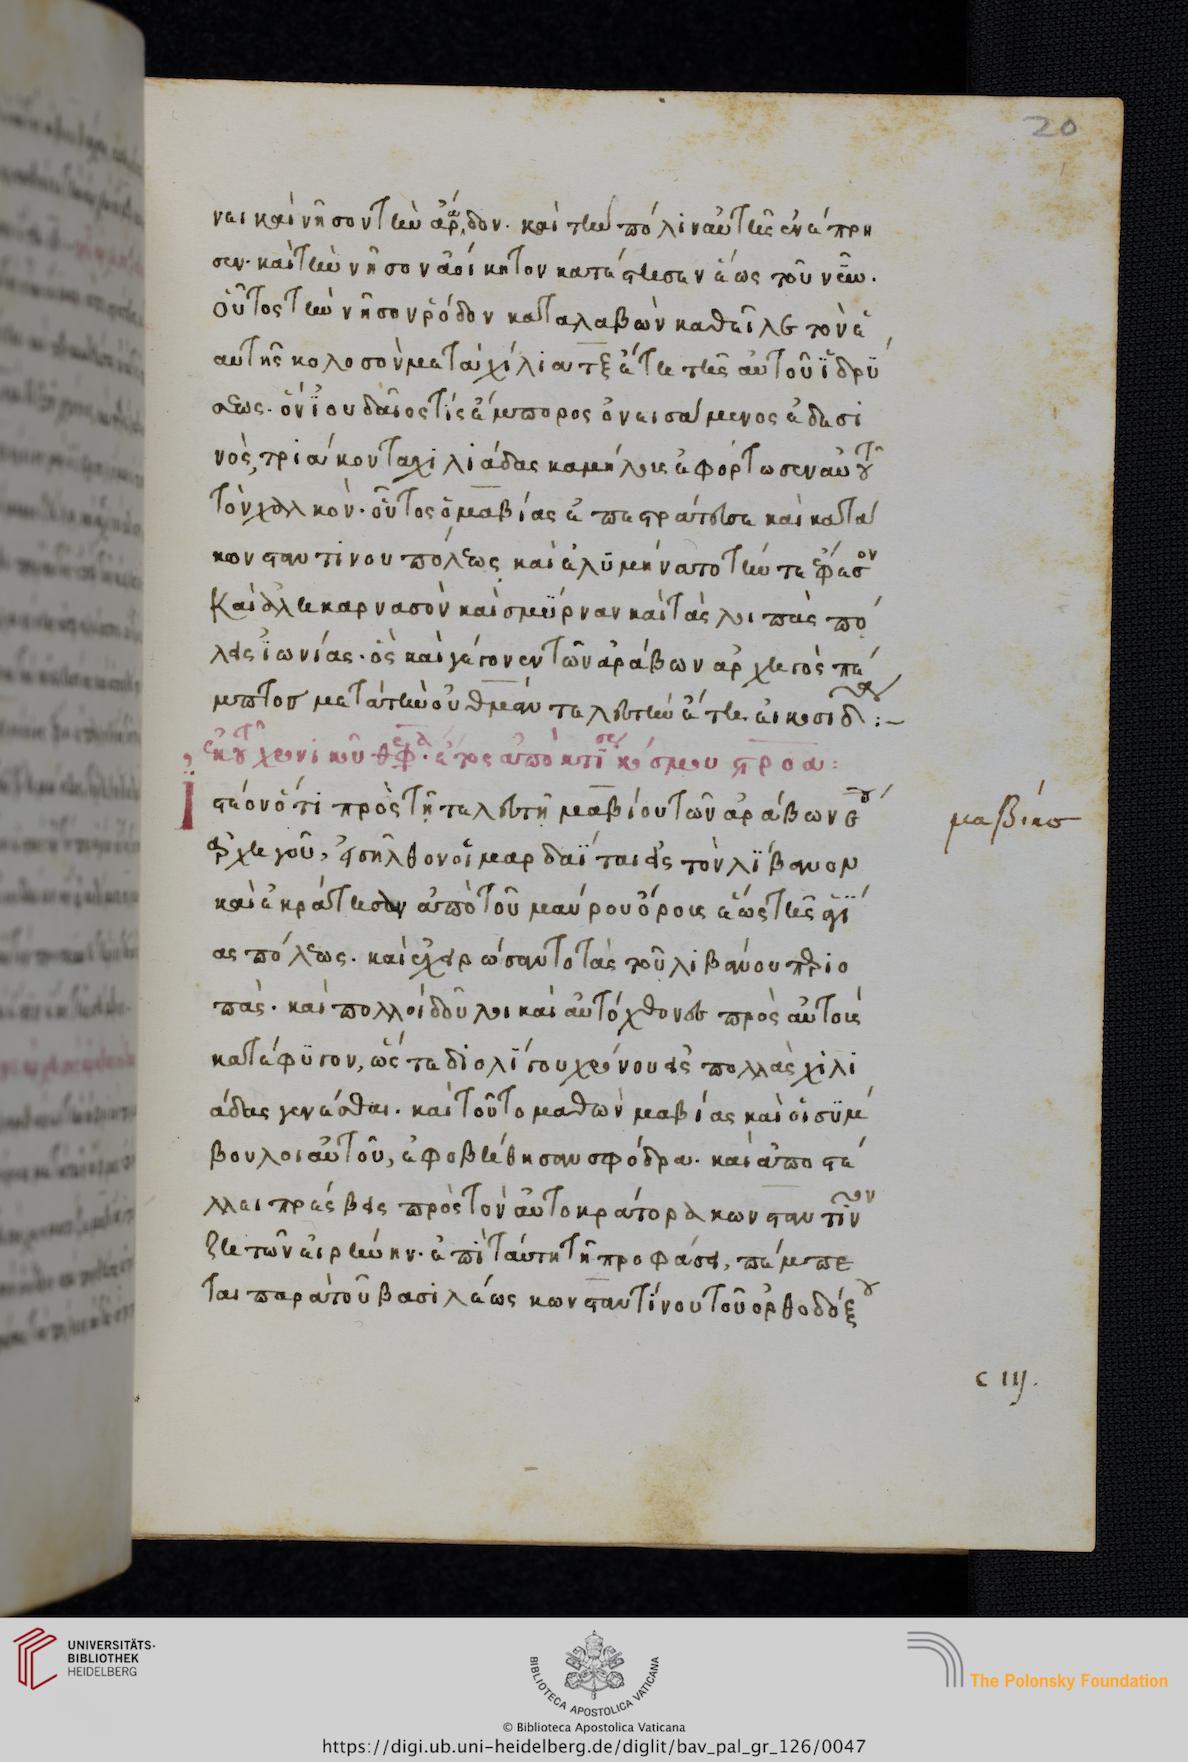 20
ναι καὶ νῆσον τὴν ἄραδον· καὶ τὴν πόλιν αὐτῆς ἐνέπρη
σεν· καὶ τὴν νῆσον ἀοίκητον κατέστησαν ἕως τοῦ νῦν.
οὗτος τὴν νῆσον ῥόδον καταλαβὼν καθεῖλε τὸν ἐν
αὐτῆς κολοσὸν μετὰ χίλια τξ ἔτη τῆς αὐτοῦ ἱδρύ
σεως· ὃν ἰουδαῖος τίς ἔμπορος ὀνεισάμενος ἐδεσι
νὸς, τριάκοντα χιλιάδας καμήλοις ἐφόρτωσεν αὐτοῦ
τὸν χαλκόν· οὗτος ὁ μαβίας ἐπεστράτευσε καὶ κατὰ
κωνσταντίνου πόλεως καὶ ἐλυμήνατο τήν τε ἔφεσον
καὶ ἀλικαρνασὸν καὶ σμύρναν καὶ τὰς λοιπὰς πό
λεις ἰωνίας· ὃς καὶ γέγονεν τῶν ἀράβων ἀρχηγὸς πέ
μπτος μετὰ τὴν οὐθμὰν τελευτὴν ἔτη εἰκοσιδ :–
ἐκ τοῦ χρονικοῦ θεοφ· ἔτος ἀπὸ κτίσεως κόσμου ϛροα:
ἱστέον ὅτι πρὸς τῇ τελευτῇ μαβίου τῶν ἀράβων
ἀρχηγοῦ, εἰσῆλθον οἱ μαρδαῗται εἰς τὸν λίβανον
καὶ ἐκράτησαν ἀπὸ τοῦ μαύρου ὄρους ἕως τῆς ἁγί
ας πόλεως· καὶ ἐχειρώσαντο τὰς τοῦ λιβάνου περιο
πάς· καὶ πολλοὶ δοῦλοι καὶ αὐτόχθονες πρὸς αὐτοὺς
κατέφυγον, ὥς τε δι ολίγου χρόνου εἰς πολλὰς χιλι
άδας γενέσθαι· καὶ τοῦτο μαθὼν μαβίας καὶ οἱ σύμ
βουλοι αὐτοῦ, ἐφοβήθησαν σφόδρα· καὶ ἀποστέ
λλει πρέσβεις πρὸς τὸν αὐτοκράτορα κωνσταντῖνον
ζητῶν εἰρήνην· ἐπὶ ταύτη τῇ προφάσει, πέμπε
ται παρὰ τοῦ βασιλέως κωνσταντίνου τοῦ ὀρθοδόξου
μαβίας
c iij.
UNIVERSITÄTS-
BIBLIOTHEK
HEIDELBERG
BIBLIOTECA APOSTOLICA VATICANA
© Biblioteca Apostolica Vaticana
The Polonsky Foundation
https://digi.ub.uni-heidelberg.de/diglit/bav_pal_gr_126/0047